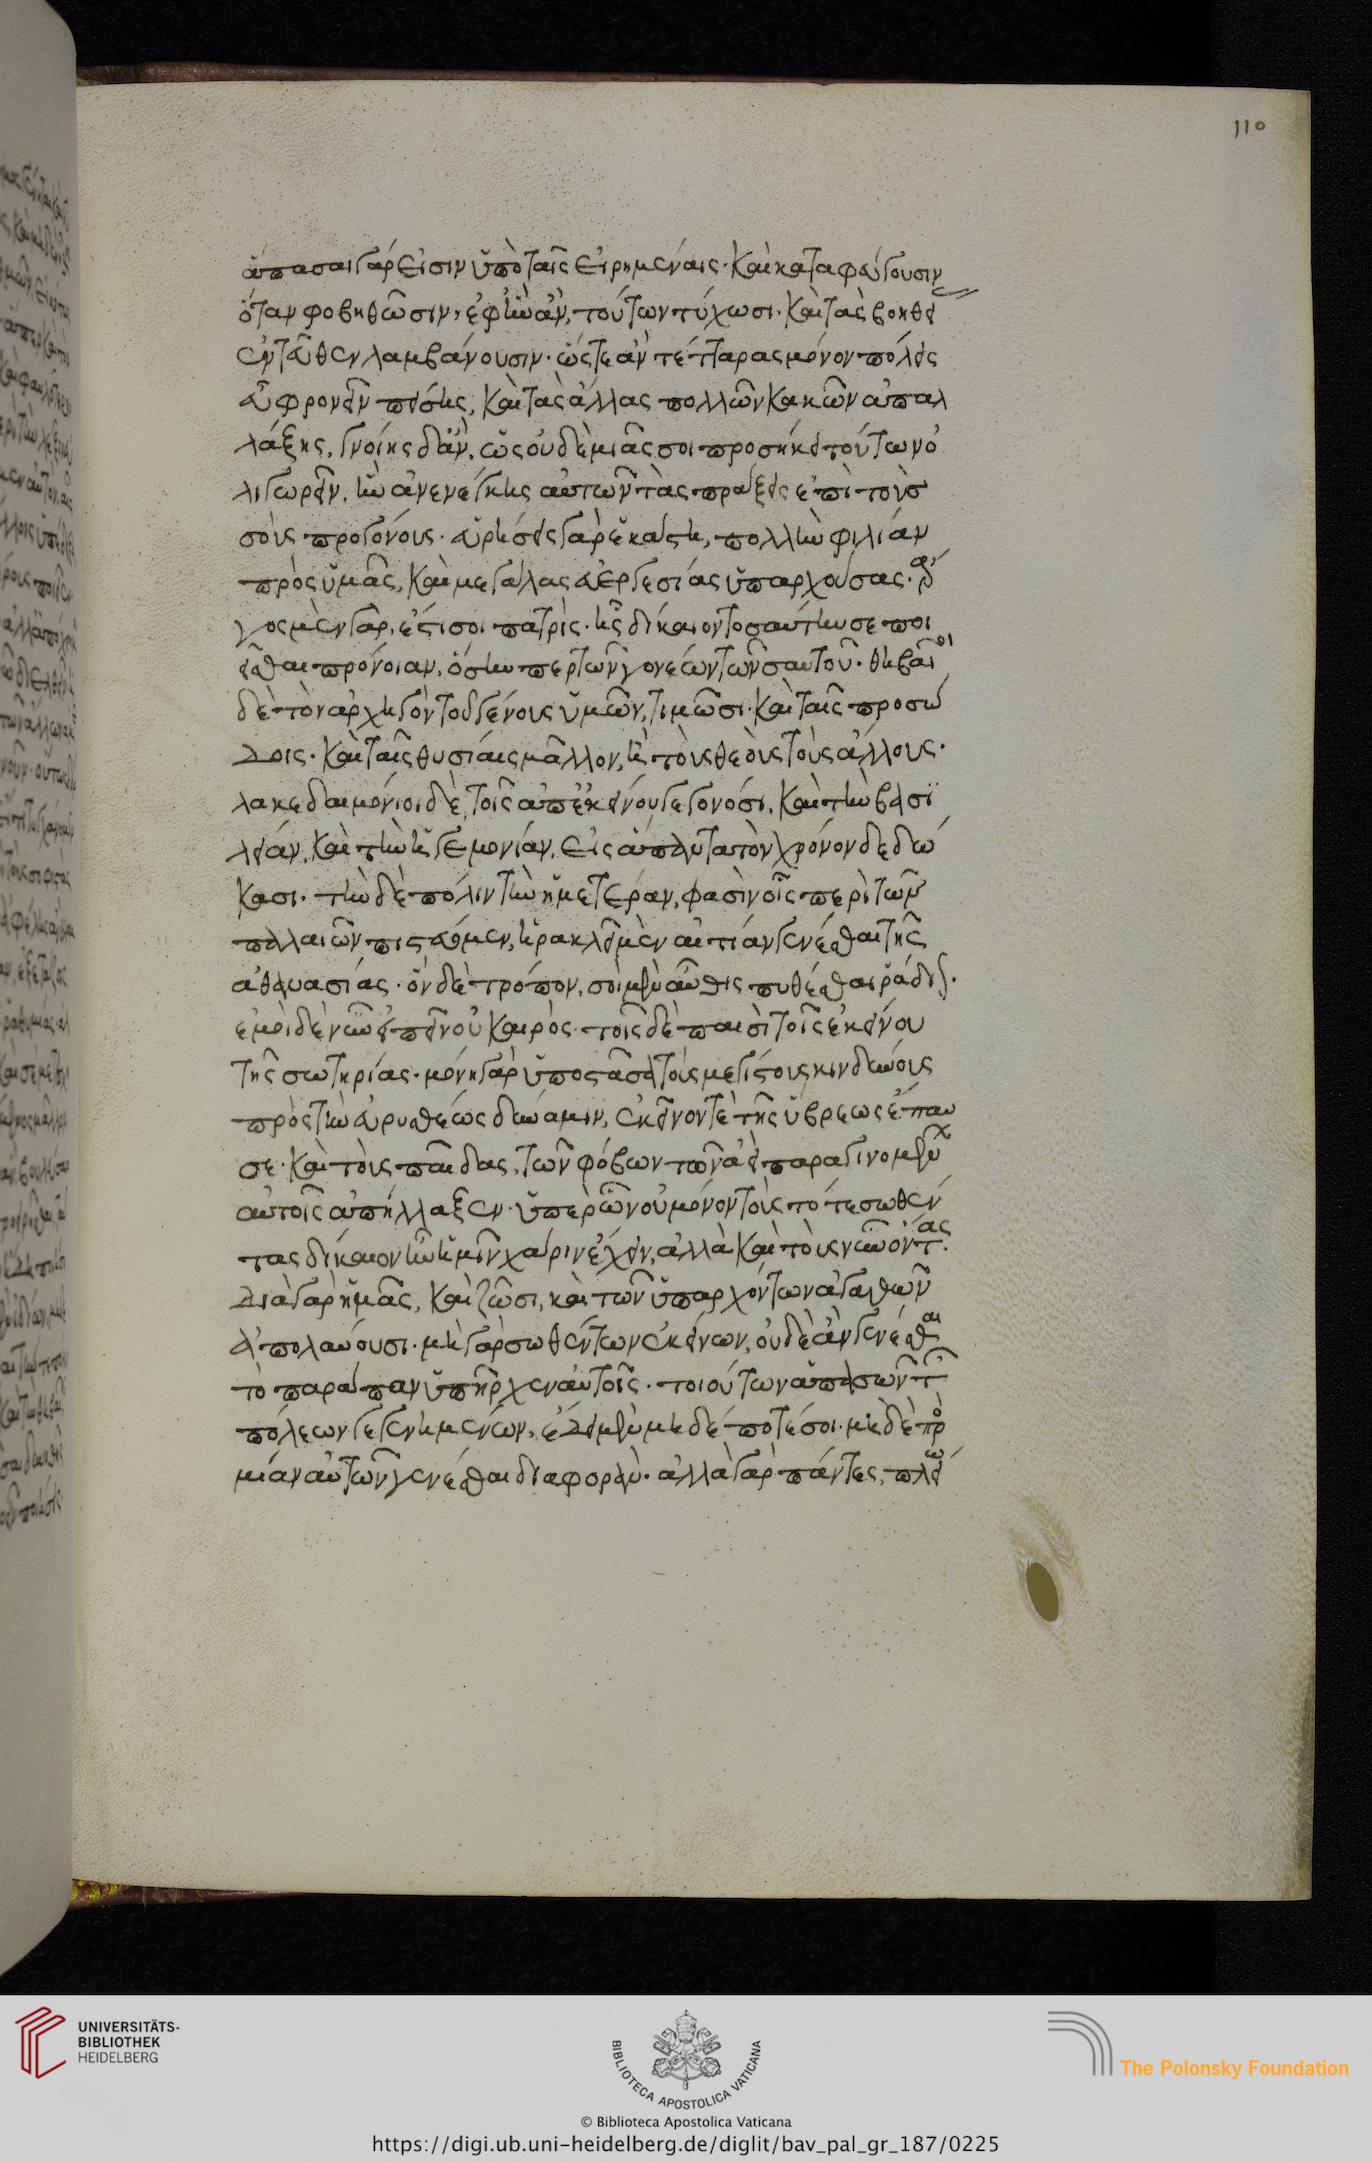 110
ἅπασαι γάρ εἰσιν ὑπὸ ταῖς εἰρημέναις· καὶ καταφεύγουσιν
ὅταν φοβηθῶσιν, ἐφ' ἣν ἂν, τούτων τύχωσι· καὶ τὰς βοηθεί
ἐντεῦθεν λαμβάνουσιν· ὥστε ἂν τέτταρας μόνον πόλεις
εὖ φρονεῖν πείσῃς, καὶ τὰς ἄλλας πολλῶν κακῶν ἀπαλ
λάξης, γνοίης δ' ἄν, ὡς οὐδὲ μιᾶς σοι προσήκει τούτων ὀ
λιγωρεῖν, ἢν ἀνενέγκῃς αὐτῶν τὰς πράξεις ἐπὶ τοὺς
σοὺς προγόνους· εὑρήσεις γὰρ ἑκάστῃ, πολλὴν φιλίαν
πρὸς ὑμᾶς, καὶ μεγάλας εὐεργεσίας ὑπαρχούσας· ἄρ
γος μὲν γάρ, ἐστί σοι πατρίς· ἧς δίκαιον τοσαύτην σε ποι
εῖσθαι πρόνοιαν, ὅσην περ τῶν γονέων τῶν σαυτοῦ· θηβαῖοι
δὲ τὸν ἀρχηγὸν τοῦ γένους ὑμῶν, τιμῶσι· καὶ ταῖς προσό
δοις· καὶ ταῖς θυσίαις μᾶλλον, ἢ τοὺς θεοὺς τοὺς ἄλλους·
λακεδαιμόνιοι δὲ, τοῖς ἀπ' ἐκείνου γεγονόσι, καὶ τὴν βασι
λείαν, καὶ τὴν ἡγεμονίαν, εἰς ἅπαντα τὸν χρόνον δεδώ
κασι· τὴν δὲ πόλιν τὴν ἡμετέραν, φασὶν οἷς περὶ τῶν
παλαιῶν πιστεύομεν, ἡρακλεῖ μὲν αἰτίαν γενέσθαι τῆς
ἀθανασίας· ὃν δὲ τρόπον, σοὶ μὲν αὖθις πυθέσθαι ῥάδιον·
ἐμοὶ δὲ νῦν εἰπεῖν οὐ καιρός· τοῖς δὲ παισὶ τοῖς ἐκείνου
τῆς σωτηρίας· μόνη γὰρ ὑποστᾶσα τοῖς μεγίστοις κινδύνοις
πρὸς τὴν εὐρυσθέως δύναμιν, ἐκεῖνόν τε τῆς ὕβρεως ἔπαυ
σε· καὶ τοὺς παῖδας, τῶν φόβων τῶν ἀεὶ παραγινομένων
αὐτοῖς ἀπήλλαξεν· ὑπὲρ ὧν οὐ μόνον τοὺς τότε σωθέν
τας δίκαιον ἦν ἡμῖν χάριν ἔχειν, ἀλλὰ καὶ τοὺς νῦν ὄντας·
διὰ γὰρ ἡμᾶς, καὶ ζῶσι, καὶ τῶν ὑπαρχόντων ἀγαθῶν
ἀπολαύουσι· μὴ γὰρ σωθέντων ἐκείνων, οὐδὲ ἂν γενέσθαι
τὸ παράπαν ὑπῆρχεν αὐτοῖς· τοιούτων ἁπασῶν τῶν
πόλεων γεγενημένων, ἔδει μὲν μηδέποτέ σοι· μηδὲ πρὸς
μίαν αὐτῶν γενέσθαι διαφοράν· ἀλλὰ γὰρ πάντες, πλείω
UNIVERSITÄTS-
BIBLIOTHEK
HEIDELBERG
BIBLIOTECA APOSTOLICA VATICANA
The Polonsky Foundation
© Biblioteca Apostolica Vaticana
https://digi.ub.uni-heidelberg.de/diglit/bav_pal_gr_187/0225